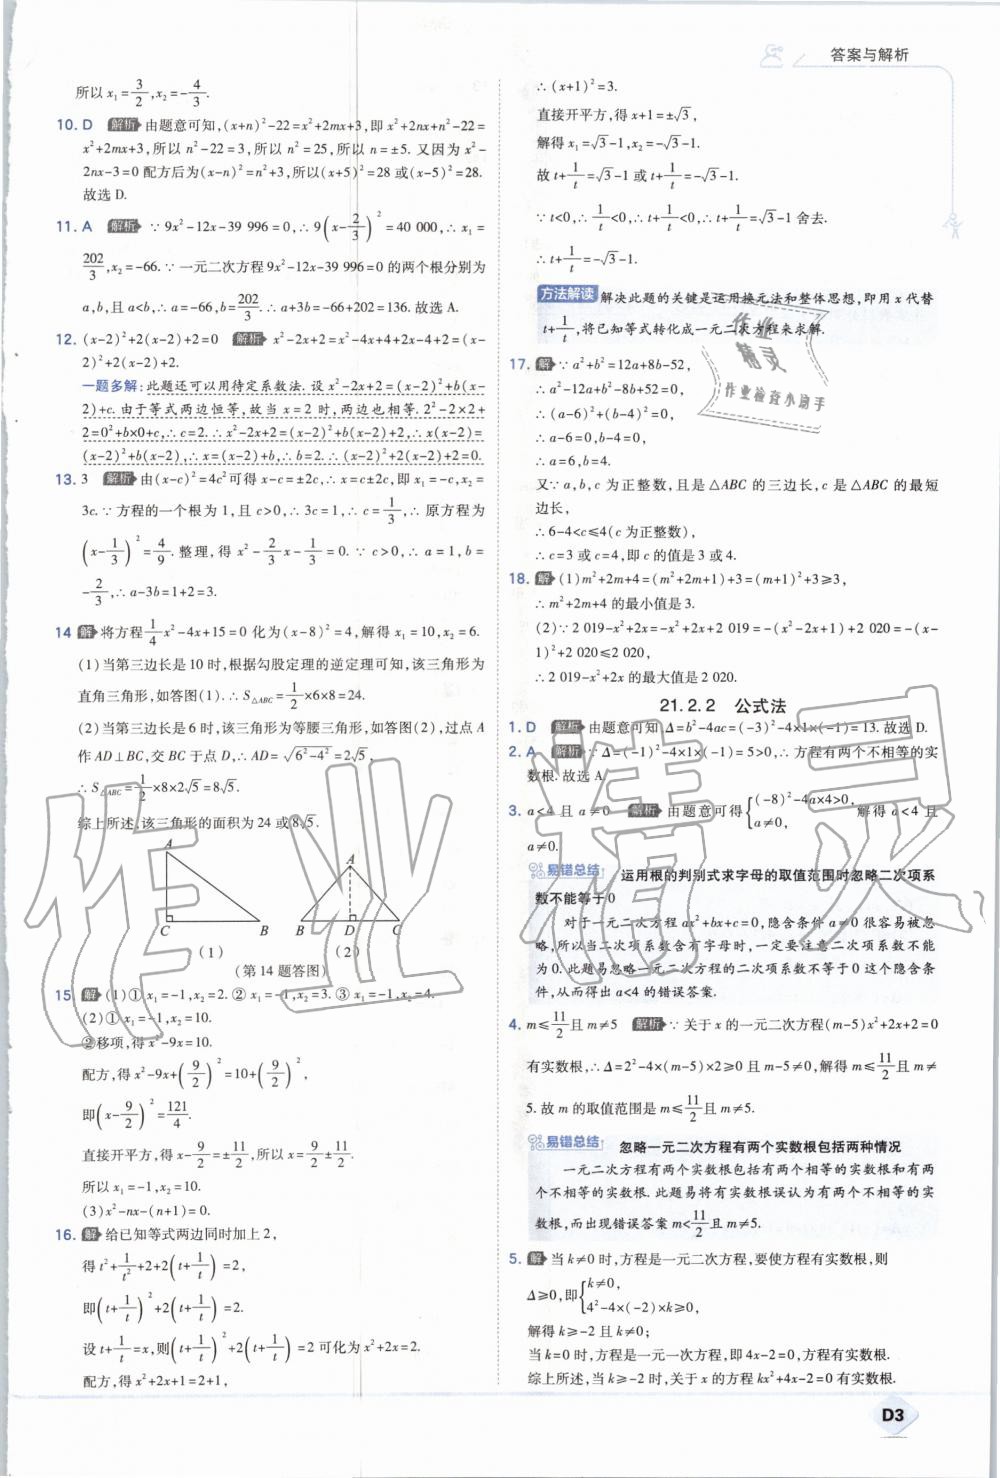 答案与解析
所以 x₁=3/2,x₂=-4/3.
10. D 解析 由题意可知,(x+n)²-22=x²+2mx+3,即 x²+2nx+n²-22=
x²+2mx+3,所以 n²-22=3,所以 n²=25,所以 n=±5. 又因为 x²-
2nx-3=0 配方后为(x-n)²=n²+3,所以(x+5)²=28 或(x-5)²=28.
故选 D.
11. A 解析 ∵ 9x²-12x-39 996=0,∴ 9(x-2/3)²=40 000,∴ x₁=
202/3,x₂=-66. ∵ 一元二次方程 9x²-12x-39 996=0 的两个根分别为
a,b,且 a<b,∴ a=-66,b=202/3.∴ a+3b=-66+202=136. 故选 A.
12. (x-2)²+2(x-2)+2=0 解析 x²-2x+2=x²-4x+4+2x-4+2=(x-
2)²+2(x-2)+2.
一题多解:此题还可以用待定系数法. 设 x²-2x+2=(x-2)²+b(x-
2)+c. 由于等式两边恒等,故当 x=2 时,两边也相等. 2²-2×2+
2=0²+b×0+c,∴ c=2. ∴ x²-2x+2=(x-2)²+b(x-2)+2,∴ x(x-2)=
(x-2)²+b(x-2),∴ x=(x-2)+b,∴ b=2. ∴ (x-2)²+2(x-2)+2=0.
13. 3 解析 由(x-c)²=4c²可得 x-c=±2c,∴ x=c±2c,即 x₁=-c,x₂=
3c. ∵ 方程的一个根为 1,且 c>0,∴ 3c=1,∴ c=1/3,∴ 原方程为
(x-1/3)²=4/9. 整理,得 x²-2/3x-1/3=0. ∵ c>0,∴ a=1,b=
-2/3,∴ a-3b=1+2=3.
14 解 将方程1/4x²-4x+15=0 化为(x-8)²=4,解得 x₁=10,x₂=6.
(1)当第三边长是 10 时,根据勾股定理的逆定理可知,该三角形为
直角三角形,如答图(1).∴ S△ABC=1/2×6×8=24.
(2)当第三边长是 6 时,该三角形为等腰三角形,如答图(2),过点 A
作 AD⊥BC,交 BC 于点 D,∴ AD=√(6²-4²)=2√5,
∴ S△ABC=1/2×8×2√5=8√5.
综上所述,该三角形的面积为 24 或 8√5.
A
A
C B B D C
(1) (2)
(第 14 题答图)
15. 解 (1)① x₁=-1,x₂=2. ② x₁=-1,x₂=3. ③ x₁=-1,x₂=4.
(2)① x₁=-1,x₂=10.
②移项,得 x²-9x=10.
配方,得 x²-9x+(9/2)²=10+(9/2)²,
即(x-9/2)²=121/4.
直接开平方,得 x-9/2=±11/2,所以 x=9/2±11/2.
所以 x₁=-1,x₂=10.
(3)x²-nx-(n+1)=0.
16. 解 给已知等式两边同时加上 2,
得 t²+1/t²+2+2(t+1/t)=2,
即(t+1/t)²+2(t+1/t)=2.
设 t+1/t=x,则(t+1/t)²+2(t+1/t)=2 可化为 x²+2x=2.
配方,得 x²+2x+1=2+1,
∴ (x+1)²=3.
直接开平方,得 x+1=±√3,
解得 x₁=√3-1,x₂=-√3-1.
故 t+1/t=√3-1 或 t+1/t=-√3-1.
∵ t<0,∴ 1/t<0,∴ t+1/t<0,∴ t+1/t=√3-1 舍去.
∴ t+1/t=-√3-1.
方法解读 解决此题的关键是运用换元法和整体思想,即用 x 代替
t+1/t,将已知等式转化成一元二次方程来求解.
17. 解 ∵ a²+b²=12a+8b-52,
∴ a²-12a+b²-8b+52=0,
∴ (a-6)²+(b-4)²=0,
∴ a-6=0,b-4=0,
∴ a=6,b=4.
又∵ a,b,c 为正整数,且是△ABC 的三边长,c 是△ABC 的最短
边长,
∴ 6-4<c≤4(c 为正整数),
∴ c=3 或 c=4,即 c 的值是 3 或 4.
18. 解 (1)m²+2m+4=(m²+2m+1)+3=(m+1)²+3≥3,
∴ m²+2m+4 的最小值是 3.
(2)∵ 2 019-x²+2x=-x²+2x+2 019=-(x²-2x+1)+2 020=-(x-
1)²+2 020≤2 020,
∴ 2 019-x²+2x 的最大值是 2 020.
21.2.2 公式法
1. D 解析 由题意可知 Δ=b²-4ac=(-3)²-4×1×(-1)=13. 故选 D.
2. A 解析 ∵ Δ=(-1)²-4×1×(-1)=5>0,∴ 方程有两个不相等的实
数根. 故选 A.
3. a<4 且 a≠0 解析 由题意可得{(-8)²-4a×4>0, a≠0, 解得 a<4 且
a≠0.
易错总结 运用根的判别式求字母的取值范围时忽略二次项系
数不能等于 0
对于一元二次方程 ax²+bx+c=0,隐含条件 a≠0 很容易被忽
略,所以当二次项系数含有字母时,一定要注意二次项系数不能
为 0. 此题易忽略一元二次方程的二次项系数不等于 0 这个隐含条
件,从而得出 a<4 的错误答案.
4. m≤11/2且 m≠5 解析 ∵ 关于 x 的一元二次方程(m-5)x²+2x+2=0
有实数根,∴ Δ=2²-4×(m-5)×2≥0 且 m-5≠0,解得 m≤11/2且 m≠
5. 故 m 的取值范围是 m≤11/2且 m≠5.
易错总结 忽略一元二次方程有两个实数根包括两种情况
一元二次方程有两个实数根包括有两个相等的实数根和有两
个不相等的实数根. 此题易将有实数根误认为有两个不相等的实
数根,而出现错误答案 m<11/2且 m≠5.
5. 解 当 k≠0 时,方程是一元二次方程,要使方程有实数根,则
Δ≥0,即{k≠0, 4²-4×(-2)×k≥0,
解得 k≥-2 且 k≠0;
当 k=0 时,方程是一元一次方程,即 4x-2=0,方程有实数根.
综上所述,当 k≥-2 时,关于 x 的方程 kx²+4x-2=0 有实数根.
D3
作业精灵
作业
精灵
作业检查小助手